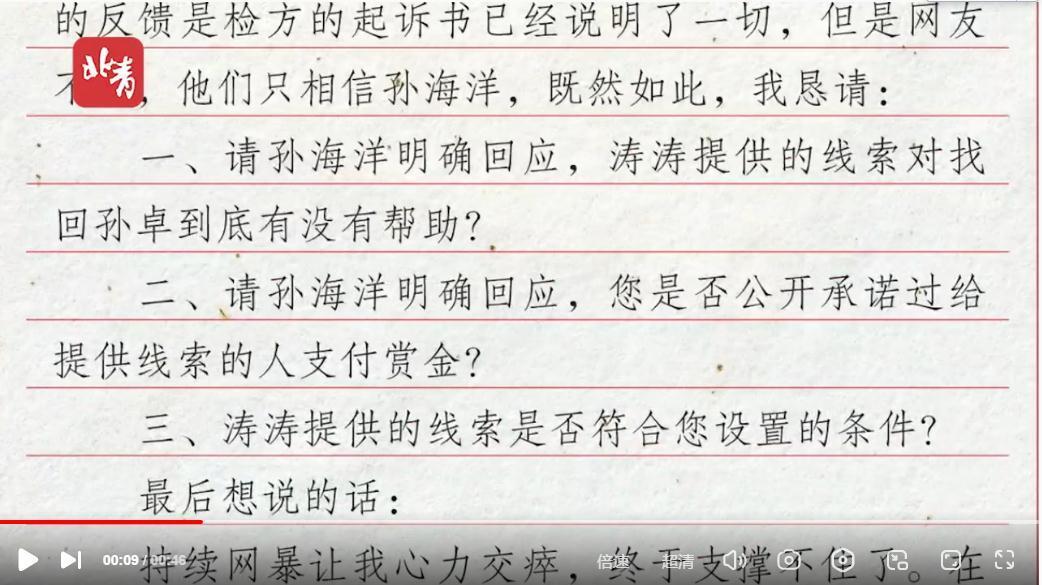 的反馈是检方的起诉书已经说明了一切，但是网友
北青
不，他们只相信孙海洋，既然如此，我恳请：
一、请孙海洋明确回应，涛涛提供的线索对找
回孙卓到底有没有帮助？
二、请孙海洋明确回应，您是否公开承诺过给
提供线索的人支付赏金？
三、涛涛提供的线索是否符合您设置的条件？
最后想说的话：
持续网暴让我心力交瘁，终于支撑不住了。在
00:09 / 00:46 倍速 超清